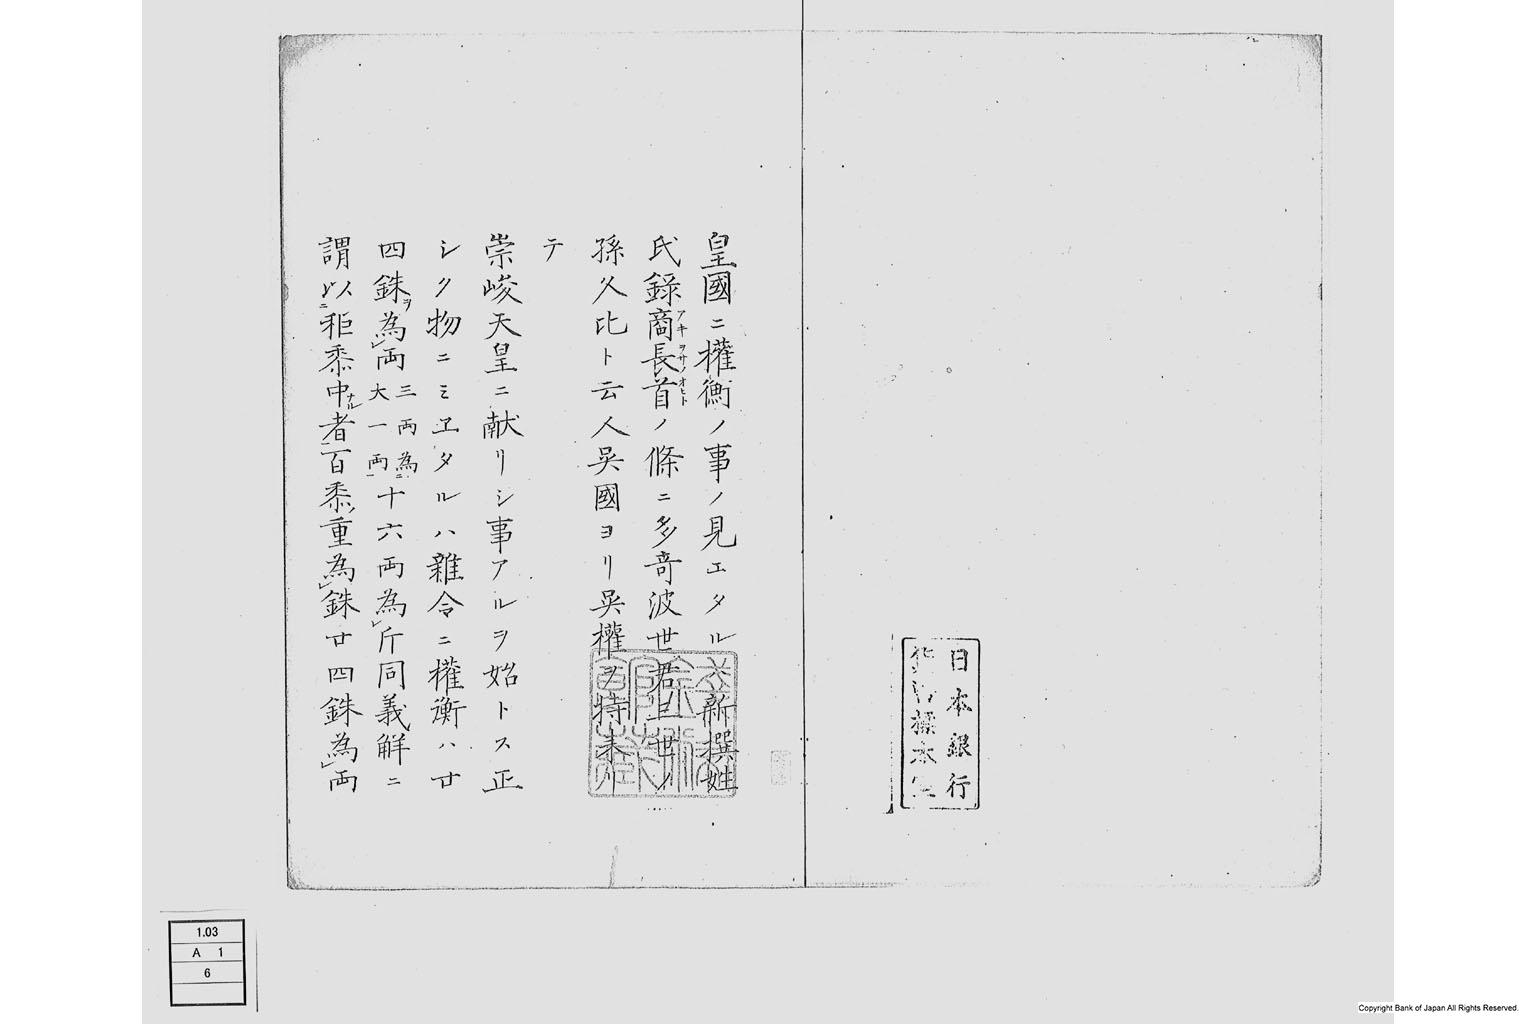 日本銀行
標本
皇國ニ權衡ノ事ノ見エタルハ新撰姓
氏錄商長首ノ條ニ多奇波世君三世ノ
アキヲサノオヒト
孫久比ト云人吳國ヨリ吳權ヲ持来リ
テ
崇峻天皇ニ献リシ事アルヲ始トス正
シク物ニミヱタルハ雜令ニ權衡ハ廿
四銖ヲ為レ両三両為二大一両一十六両為レ斤同義解ニ
謂以二秬黍中ナル者一百黍ノ重為レ銖廿四銖為レ両
1.03
A 1
6
Copyright Bank of Japan All Rights Reserved.